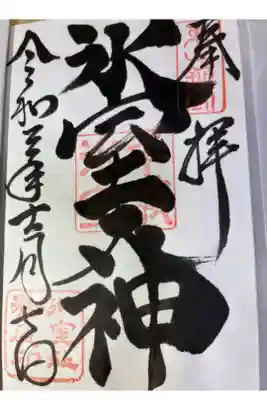 奉拝
氷室大神
令和三年十二月七日